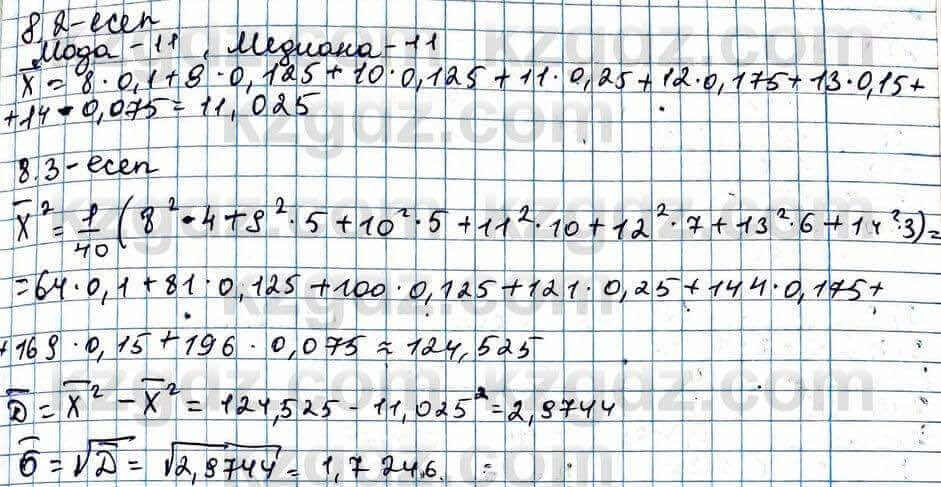 8.2-есеп
Мода - 11, Медиана - 11
X̅ = 8·0,1+9·0,125+10·0,125+11·0,25+12·0,175+13·0,15+
+14·0,075=11,025
8.3-есеп
X̅² = 1/40 (8²·4+9²·5+10²·5+11²·10+12²·7+13²·6+14²·3)=
=64·0,1+81·0,125+100·0,125+121·0,25+144·0,175+
+169·0,15+196·0,075≈124,525
D̅ = X̅² - X̅² = 124,525 - 11,025² = 2,9744
σ̅ = √D̅ = √2,9744 = 1,7246.
kzgdz.com